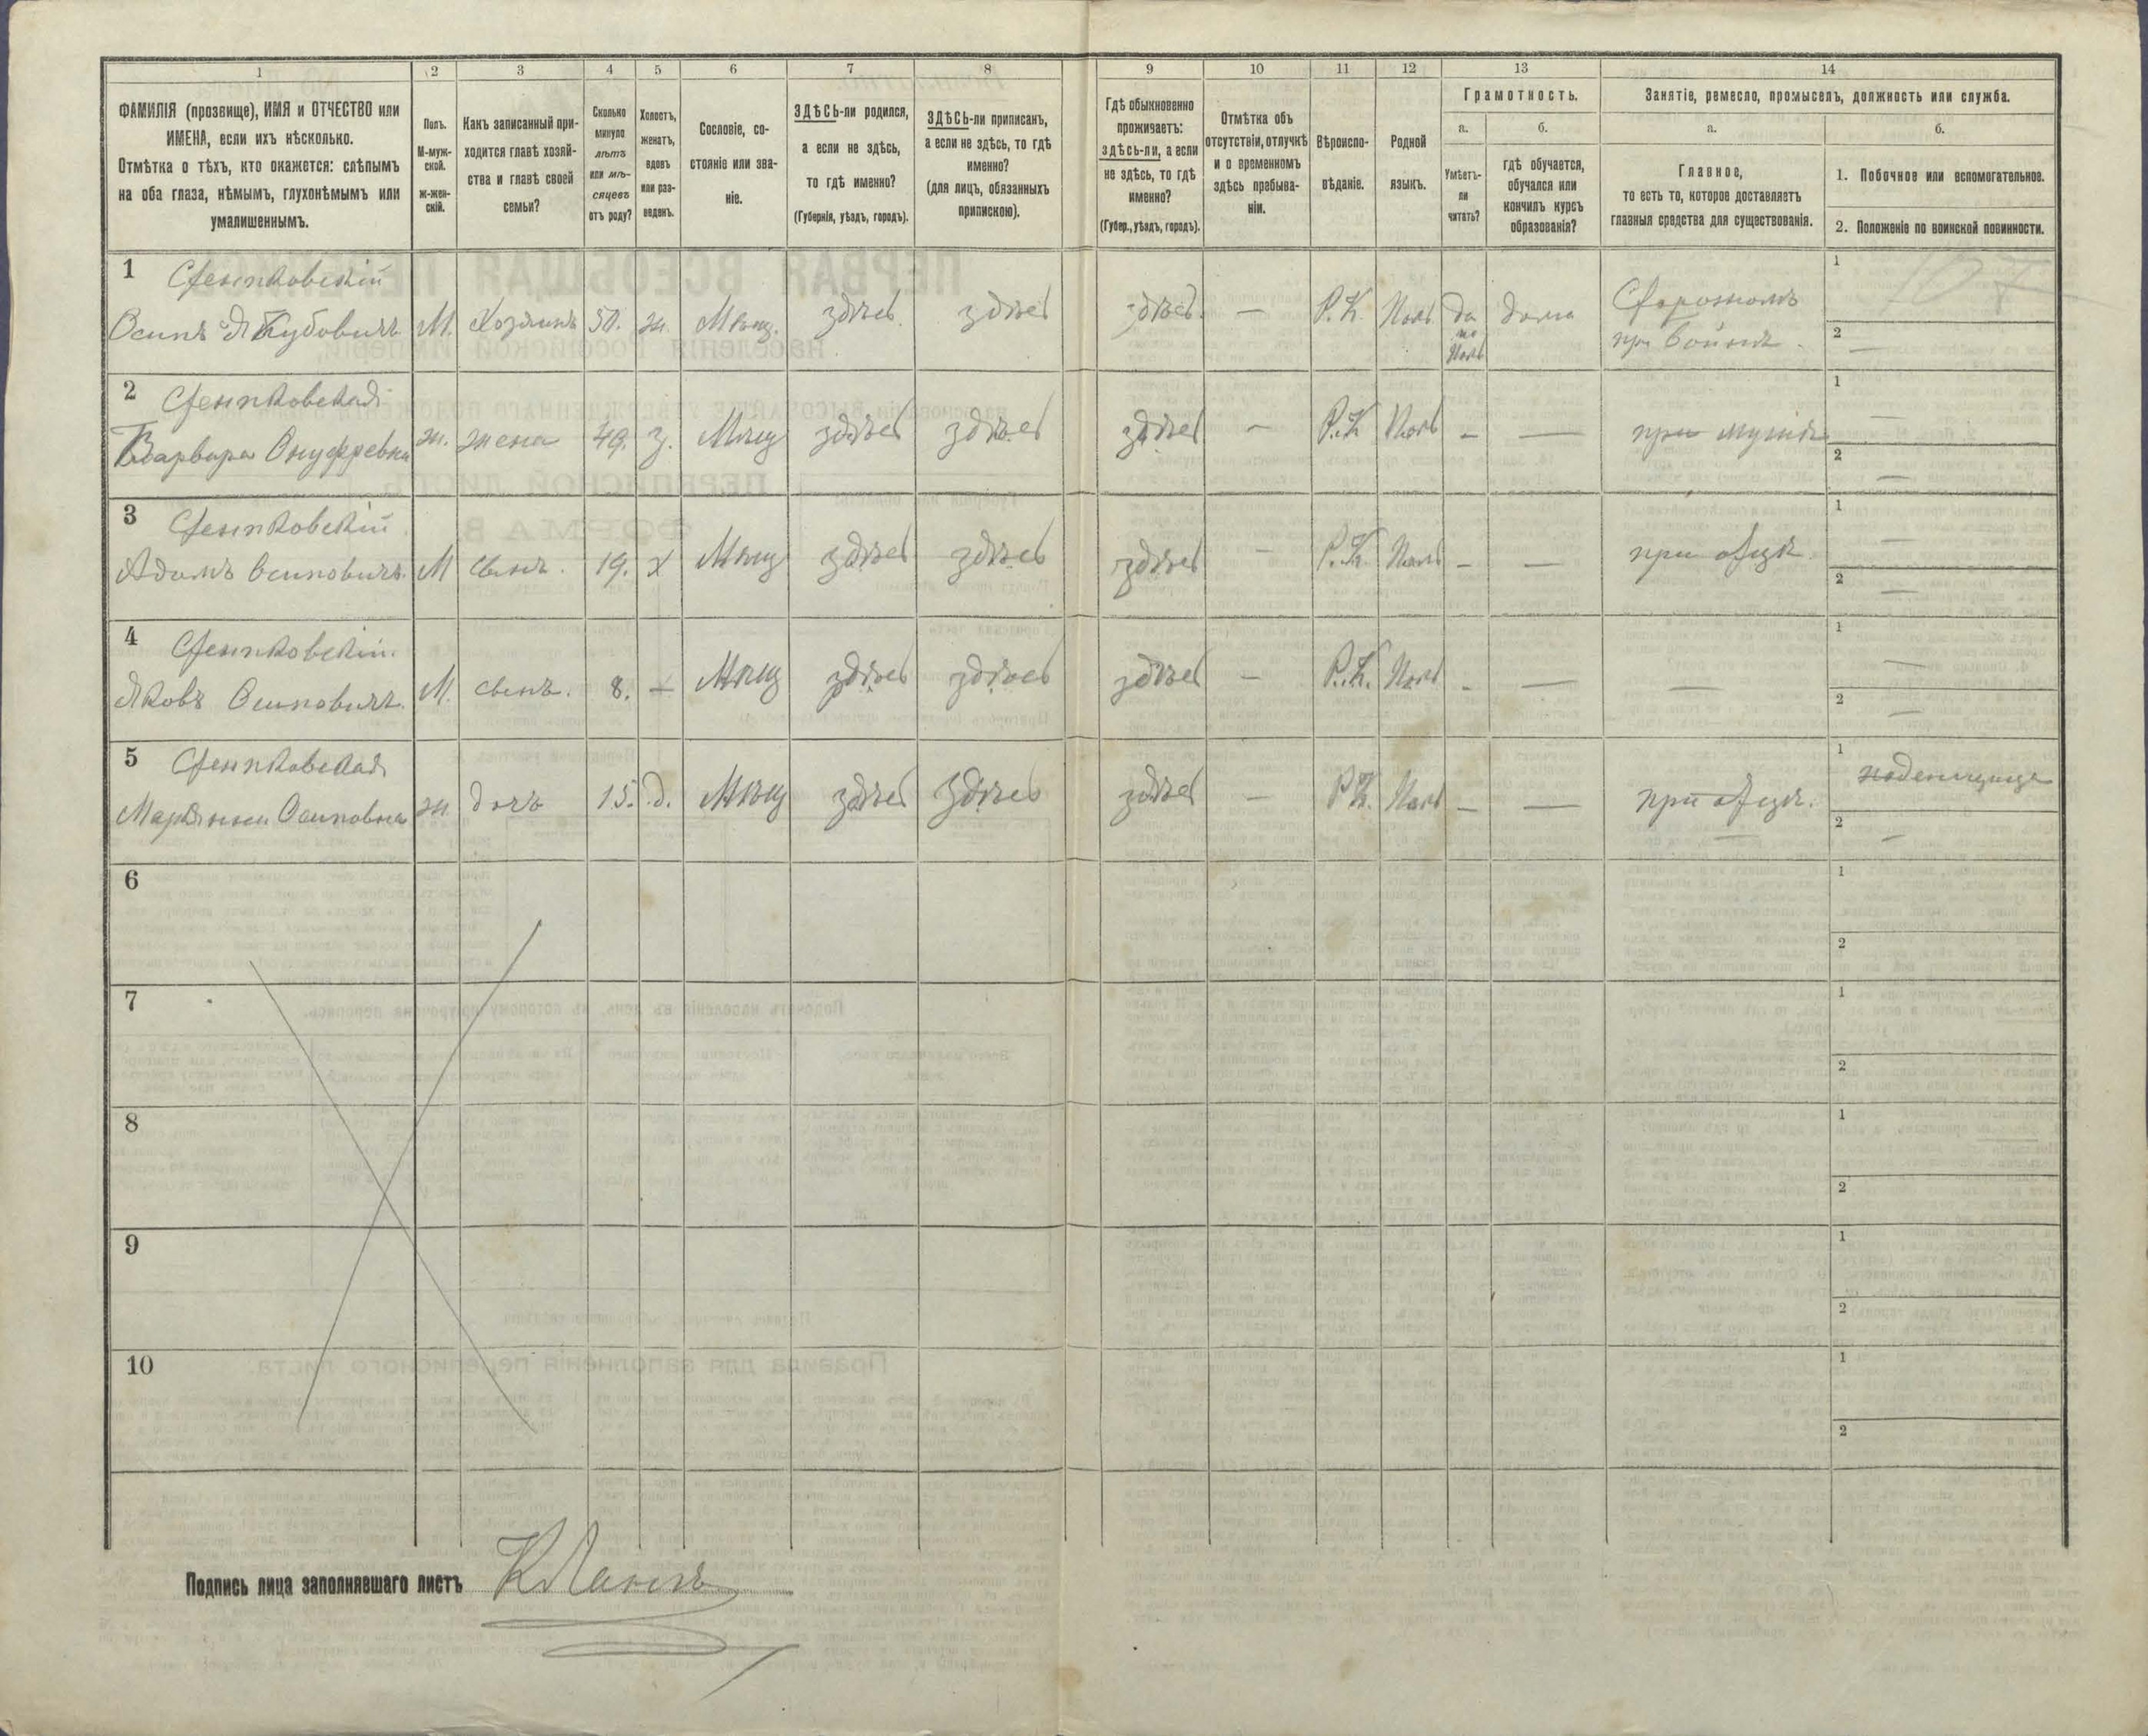 1
2
3
4
5
6
7
8
9
10
11
12
13
14
ФАМИЛІЯ (прозвище), ИМЯ и ОТЧЕСТВО или
ИМЕНА, если ихъ нѣсколько.
Отмѣтка о тѣхъ, кто окажется: слѣпымъ
на оба глаза, нѣмымъ, глухонѣмымъ или
умалишеннымъ.
Полъ.
М-муж-
ской.
Ж-жен-
скій.
Какъ записанный при-
ходится главѣ хозяй-
ства и главѣ своей
семьи?
Сколько
минуло
лѣтъ
или мѣ-
сяцевъ
отъ роду?
Холостъ,
женатъ,
вдовъ
или раз-
веденъ.
Сословіе, со-
стояніе или зва-
ніе.
ЗДѢСЬ-ли родился,
а если не здѣсь,
то гдѣ именно?
(Губернія, уѣздъ, городъ).
ЗДѢСЬ-ли приписанъ,
а если не здѣсь, то гдѣ
именно?
(для лицъ, обязанныхъ
припискою).
Гдѣ обыкновенно
проживаетъ:
здѣсь-ли, а если
не здѣсь, то гдѣ
именно?
(Губер., уѣздъ, городъ).
Отмѣтка объ
отсутствіи, отлучкѣ
и о временномъ
здѣсь пребыва-
ніи.
Вѣроиспо-
вѣданіе.
Родной
языкъ.
Грамотность.
а.
Умѣетъ-
ли
читать?
б.
гдѣ обучается,
обучался или
кончилъ курсъ
образованія?
Занятіе, ремесло, промыселъ, должность или служба.
а.
Главное,
то есть то, которое доставляетъ
главныя средства для существованія.
б.
1. Побочное или вспомогательное.
2. Положеніе по воинской повинности.
1
Осипъ Якубовичъ М. Хозяинъ 50. ж. Мѣщ. здѣсь здѣсь здѣсь — Р.К. Поль да дома Сторожомъ
по
Поль
при
1
2 —
2
Варвара Онуфревна ж. жена 49. з. Мѣщ здѣсь здѣсь здѣсь — Р.К Поль — — при мужѣ
1 —
2 —
3
Адамъ Осиповичъ. М сынъ. 19. х Мѣщ здѣсь здѣсь здѣсь — Р.К Поль — — при отцѣ.
1 —
2 —
4
Яковъ Осиповичъ. М. сынъ. 8. — Мѣщ здѣсь здѣсь здѣсь — Р.К. Поль — — —
1 —
2 —
5
Марьянна Осиповна ж. дочь 15. д. Мѣщ здѣсь здѣсь здѣсь — Р.К. Поль — — при отцѣ.
1 поденщица
2 —
6
1
2
7
1
2
8
1
2
9
1
2
10
1
2
Подпись лица заполнявшаго листъ